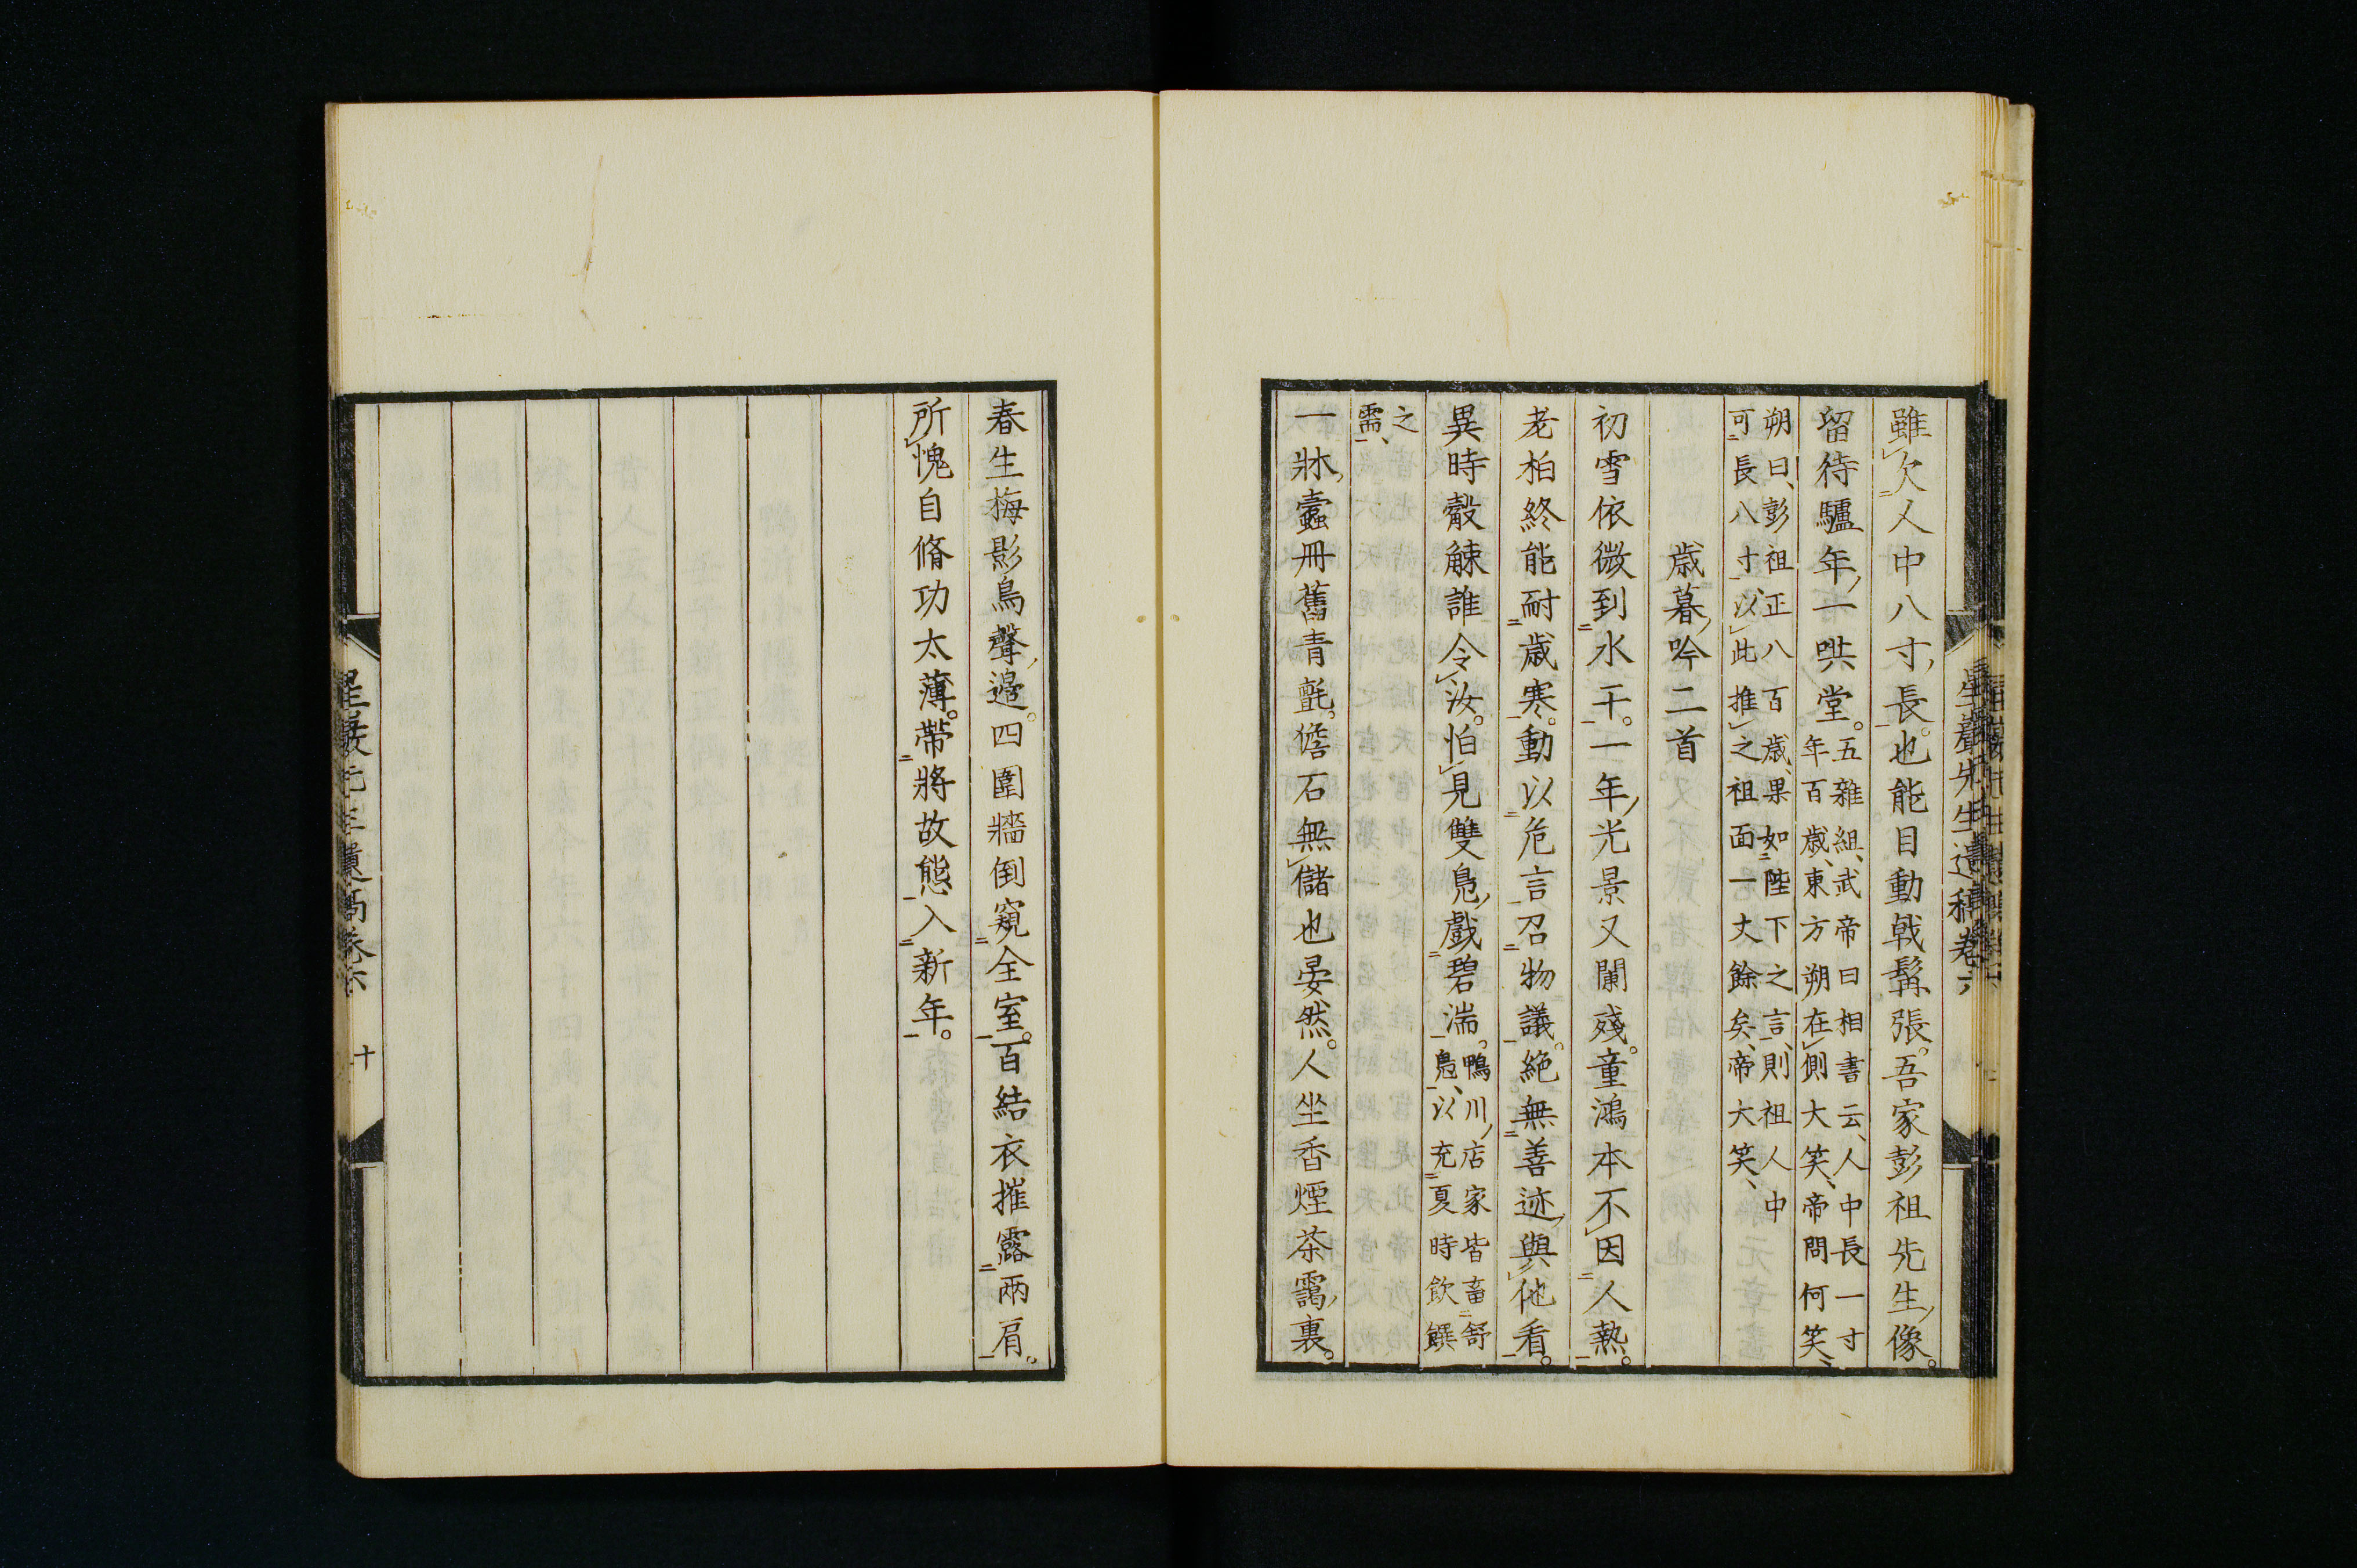 雖欠人中八寸長。也能目動戟髯張。吾家彭祖先生像。
留待驢年一哄堂。五雜組、武帝曰相書云、人中長一寸
年百歳、東方朔在側大笑、帝問何笑、
朔曰、彭祖正八百歳、果如陛下之言、則祖人中
可長八寸、以此推之祖面一丈餘矣、帝大笑、
歳暮吟二首
初雪依微到水干。一年光景又闌殘。童鴻本不因人熱。
老柏終能耐歳寒。動以危言召物議。絕無善迹與他看。
異時觳觫誰令汝。怕見雙鳧戲碧湍。鴨川店家皆畜舒
鳧、以充夏時飲饌
之
需、
一牀蠹冊舊青氈。儋石無儲也晏然。人坐香煙茶靄裏。
星巖先生遺稿卷六
春生梅影鳥聲邊。四圍牆倒窺全室。百結衣摧露兩肩。
所愧自脩功太薄。帶將故態入新年。
星巖先生遺稿卷六
十